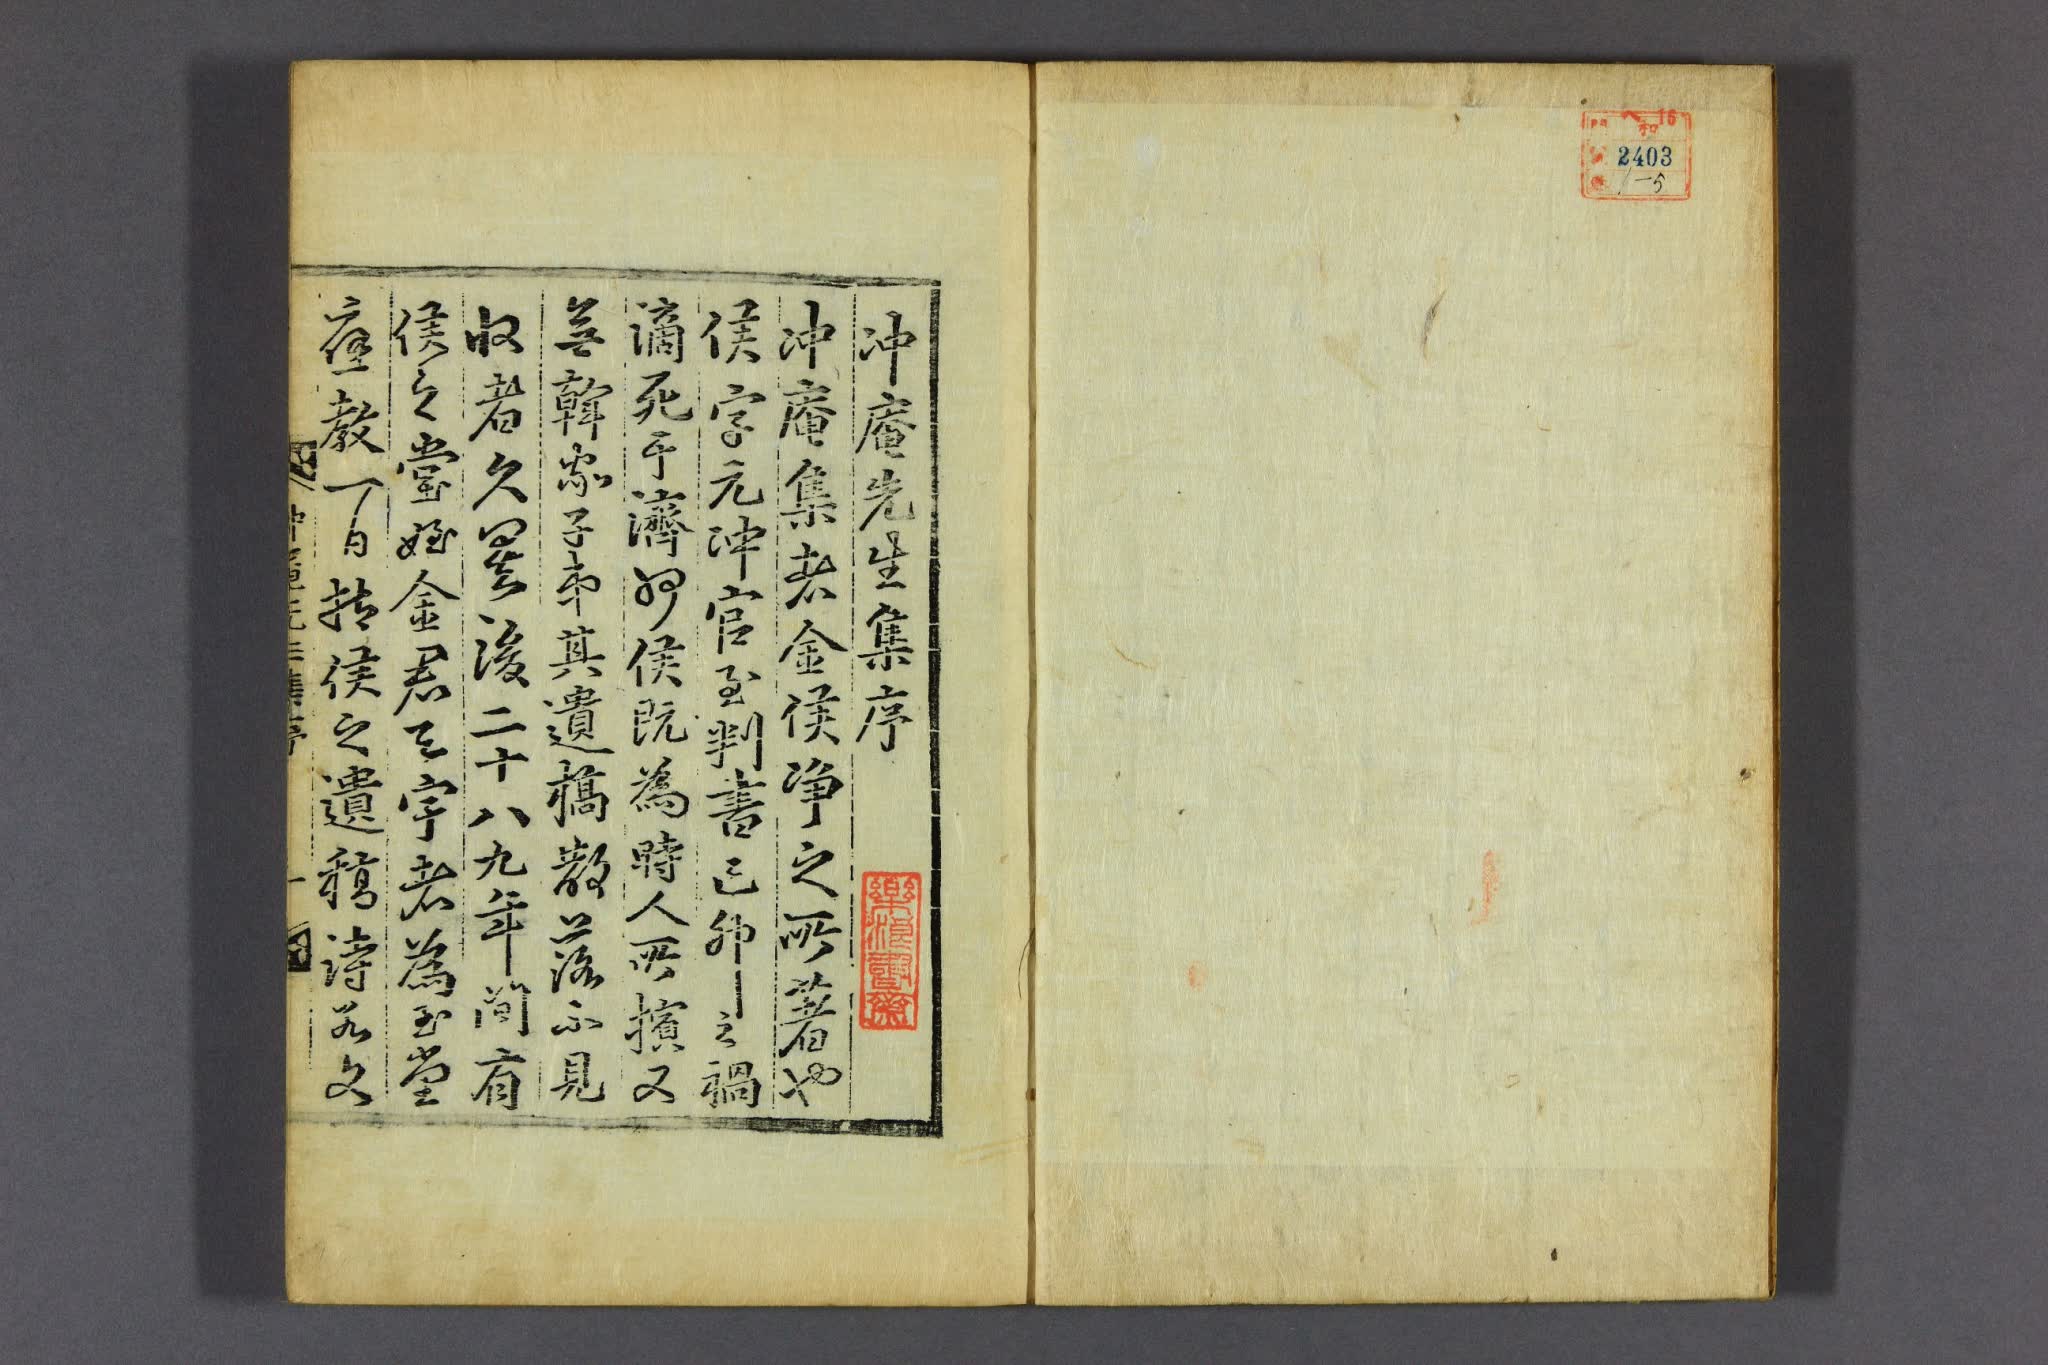 和
16
2403
1-5
冲庵先生集序
冲庵集者金侯净之所著也
侯字元冲官至判書己卯之禍
謫死于濟州侯既為時人所擯又
無幹家子弟其遺稿散落不見
收者久矣後二十八九年間有
侯之堂姪金君天宇者為玉堂
應教一日持侯之遺稿詩若文
冲庵先生集序
一